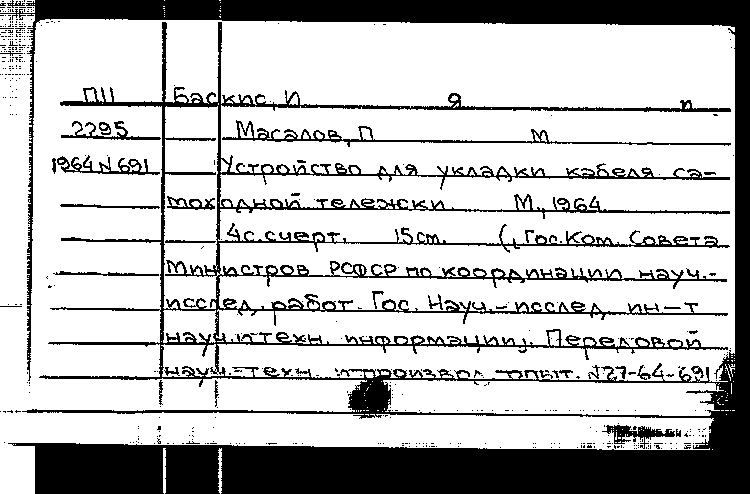 ПII Баскис, И Я п
2295 Масалов, П М
1964 N 691 Устройство для укладки кабеля са-
моходной тележки. М., 1964
4с. с черт. 15 см. (Гос. Ком. Совета
Министров РСФСР по координации науч.-
исслед. работ. Гос. Науч.-исслед. ин-т
науч. и техн. информации). Передовой
науч.-техн. и производ. опыт. N27-64-691